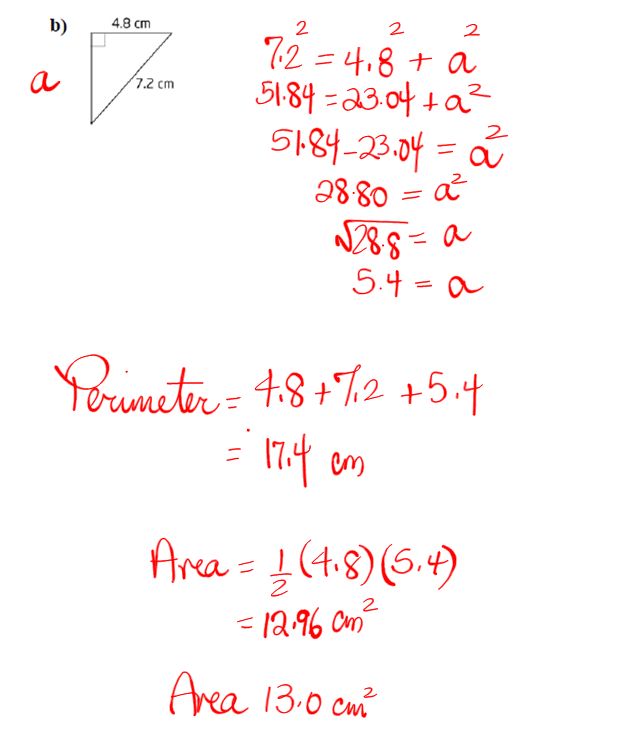 b) 4.8 cm
a 7.2 cm
7.2² = 4.8² + a²
51.84 = 23.04 + a²
51.84 - 23.04 = a²
28.80 = a²
√28.8 = a
5.4 = a
Perimeter = 4.8 + 7.2 + 5.4
= 17.4 cm
Area = 1/2 (4.8)(5.4)
= 12.96 cm²
Area 13.0 cm²